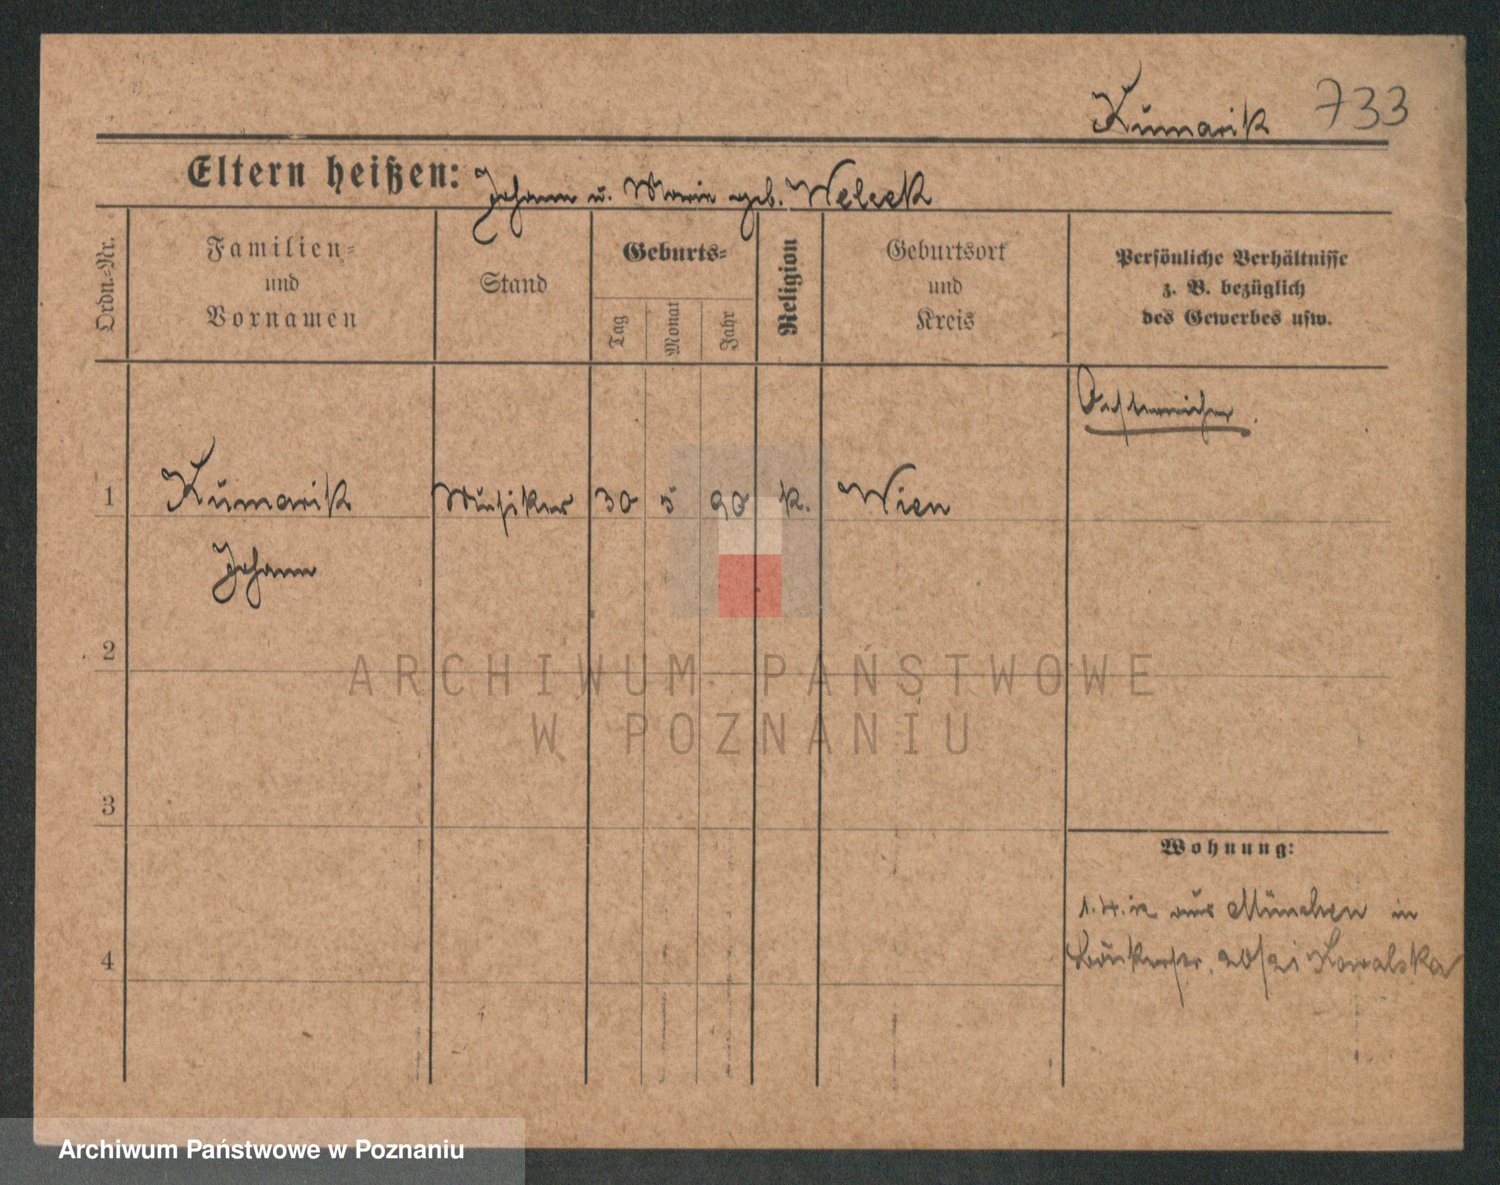 Kumarik 733
Eltern heißen: Johann u. Maria geb. Welcek
Ordn.-Nr.
Familien-
und
Vornamen
Stand
Geburts-
Tag
Monat
Jahr
Religion
Geburtsort
und
Kreis
Persönliche Verhältnisse
z. B. bezüglich
des Gewerbes usw.
Oesterreicher.
1 Kumarik Musiker 30 5 90 k. Wien
Johann
2
ARCHIWUM PAŃSTWOWE
W POZNANIU
3
Wohnung:
1.4.12 aus München in
20/21 Kowalska
4
Archiwum Państwowe w Poznaniu